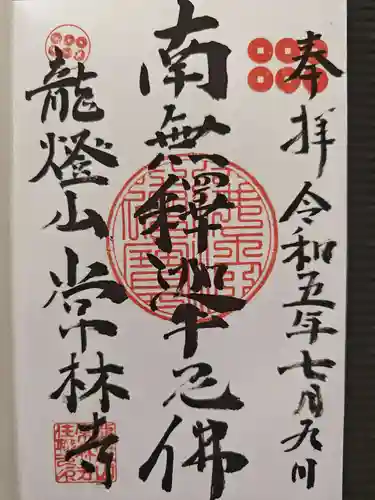 奉拝 令和五年七月九日
南無釋迦牟尼佛
龍燈山常林寺